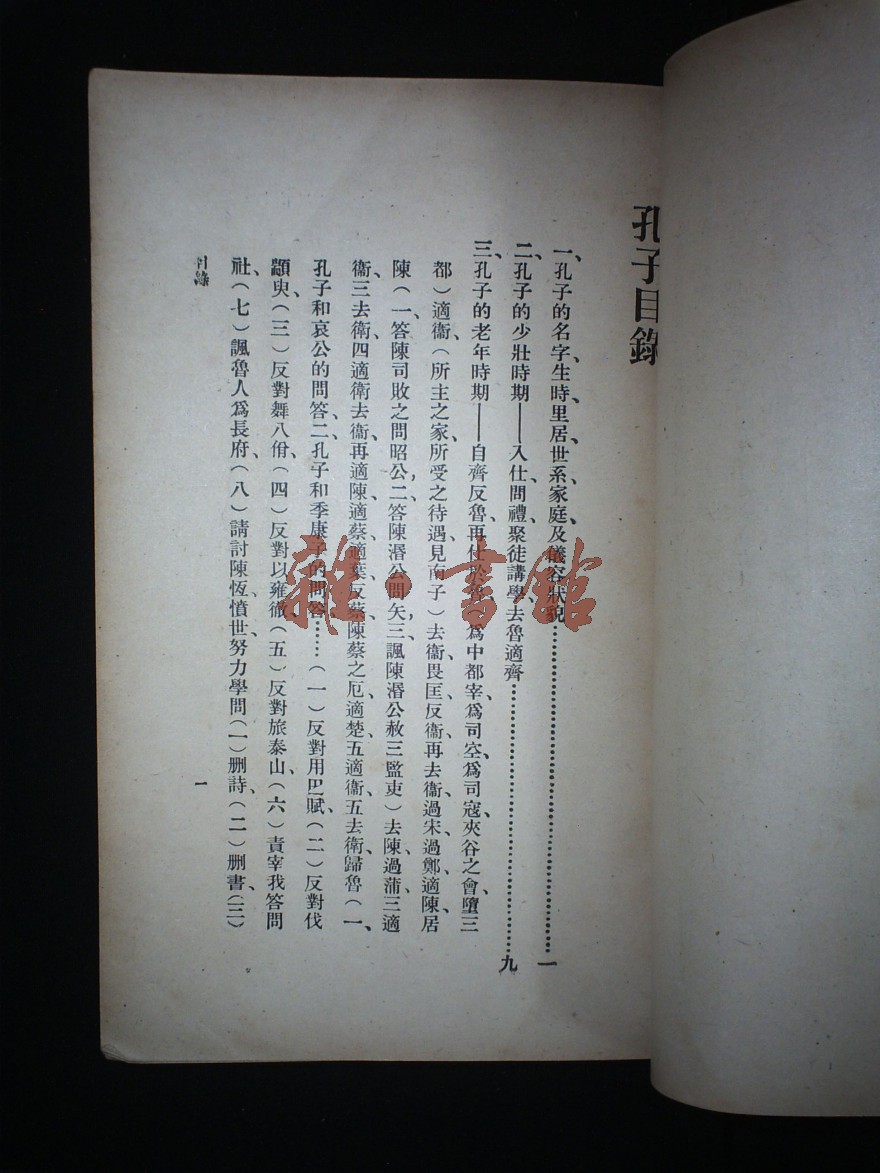 孔子目錄
一、孔子的名字、生時、里居、世系、家庭、及儀容狀貌……一
二、孔子的少壯時期——入仕、問禮、聚徒講學、去魯適齊……九
三、孔子的老年時期——自齊反魯、再仕於魯、爲中都宰、爲司空、爲司寇、夾谷之會、墮三
都）適衞（所主之家、所受之待遇、見南子）去衞、畏匡、反衞、再去衞、過宋、過鄭、適陳、居
陳（一、答陳司敗之問昭公，二、答陳湣公問矢，三、諷陳湣公赦三監吏）去陳、過蒲、三適
衞、三去衞、四適衞、去衞、再適陳、適蔡、適葉、反蔡、陳蔡之厄、適楚、五適衞、五去衞、歸魯（一、
孔子和哀公的問答、二、孔子和季康子的問答……（一）反對用田賦、（二）反對伐
顓臾、（三）反對舞八佾、（四）反對以雍徹、（五）反對旅泰山、（六）責宰我答問
社、（七）諷魯人爲長府、（八）請討陳恆、憤世、努力學問（一）刪詩、（二）刪書、（三）
目錄
一
雜·書館